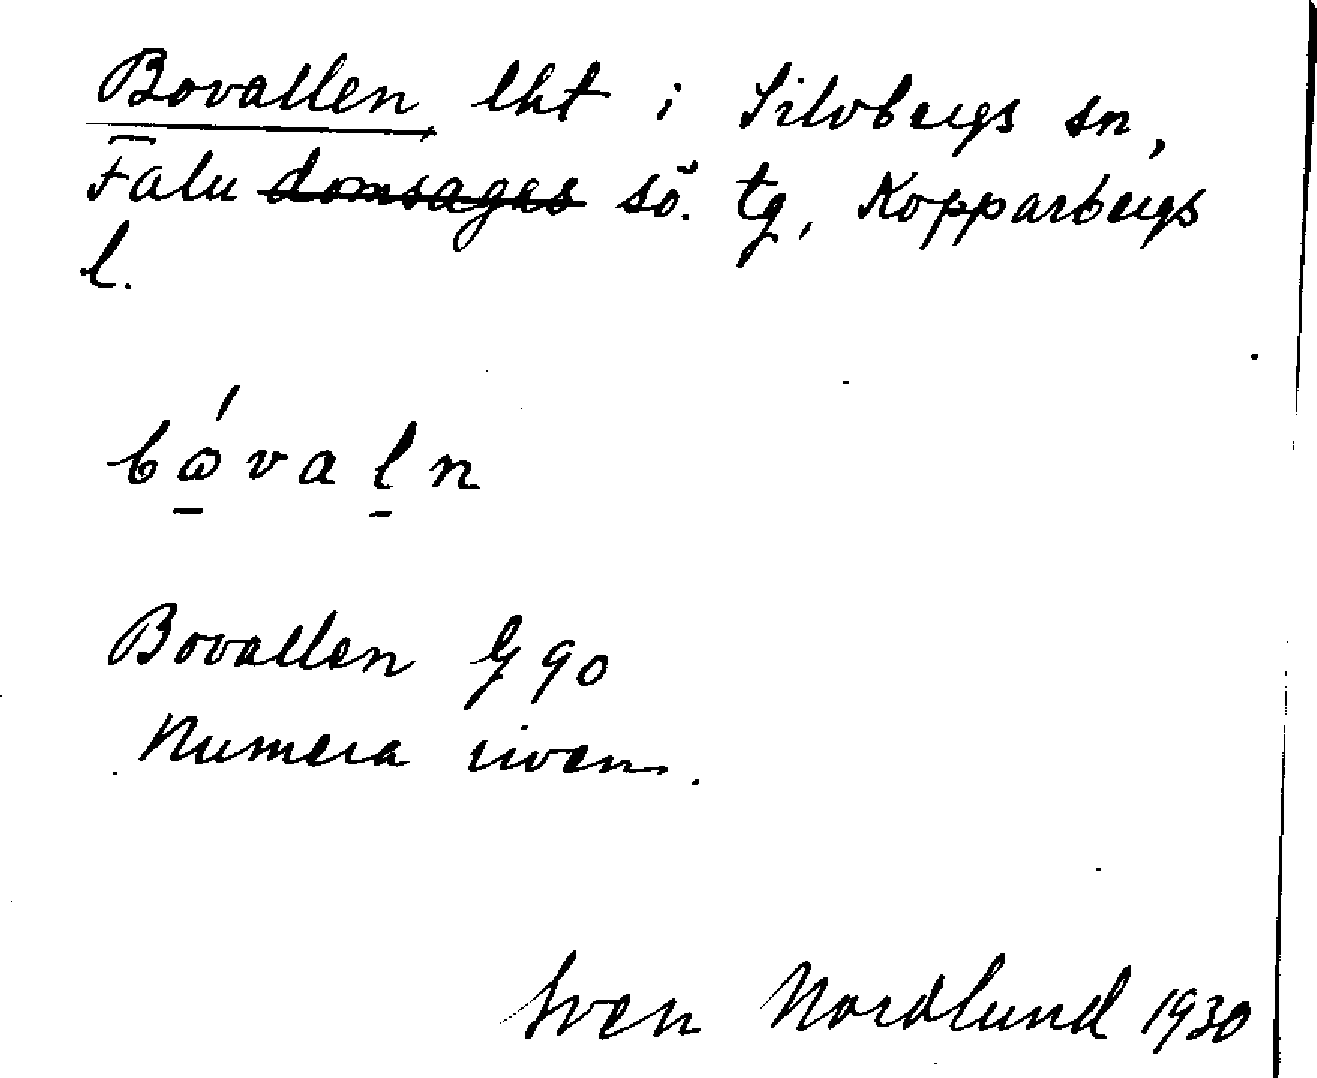 Bovallen lht i Silvbergs sn,
Falu domsagas sö. tg, Kopparbergs
l.
bóvaln
Bovallen G 90
Numera riven.
Sven Nordlund 1930